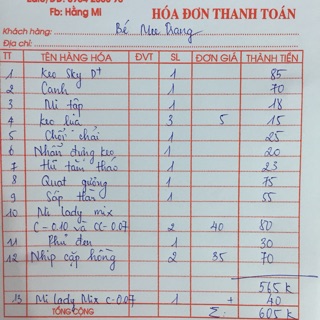 Fb: Hằng Mi HÓA ĐƠN THANH TOÁN
Khách hàng: Bé Trang
Địa chỉ:
TT TÊN HÀNG HÓA ĐVT SL ĐƠN GIÁ THÀNH TIỀN
1 Keo Sky D+ 1 85
2 Canh 1 70
3 Mi tập 1 18
4 Keo lúa 3 5 15
5 Chổi chải 1 25
6 Nhẫn đựng keo 1 20
7 Hũ tàn thảo 1 23
8 Quạt gương 1 75
9 Sáp 1 55
10 Mi lady mix
C-0.10 và CC-0.07 2 40 80
11 Phủ đen 1 30
12 Nhíp cặp hồng 2 35 70
565 K
13 Mi lady Mix C-0.07 1 + 40
TỔNG CỘNG Σ: 605 K